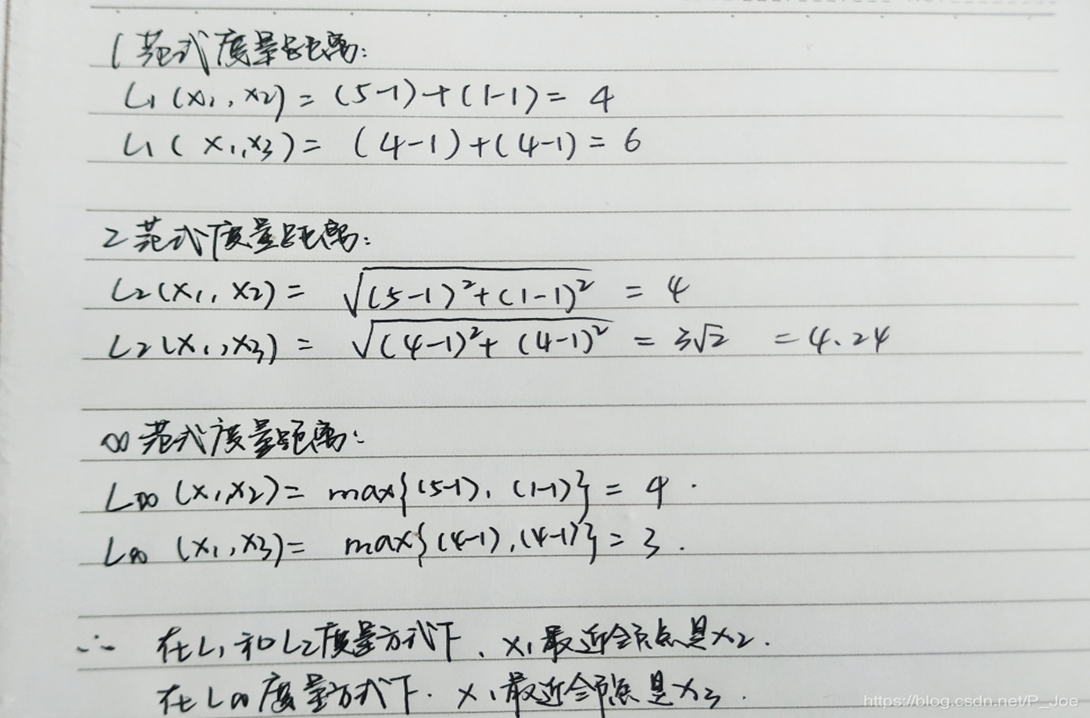 1范式度量距离:
L₁(x₁,x₂)=(5-1)+(1-1)=4
L₁(x₁,x₃)=(4-1)+(4-1)=6
2范式度量距离:
L₂(x₁,x₂)=√((5-1)²+(1-1)²)=4
L₂(x₁,x₃)=√((4-1)²+(4-1)²)=3√2 =4.24
∞范式度量距离:
L∞(x₁,x₂)=max{(5-1),(1-1)}=4.
L∞(x₁,x₃)=max{(4-1),(4-1)}=3.
∴ 在L₁和L₂度量方式下、x₁最近邻点是x₂.
在L∞度量方式下.x₁最近邻点是x₃.
https://blog.csdn.net/P_Joe